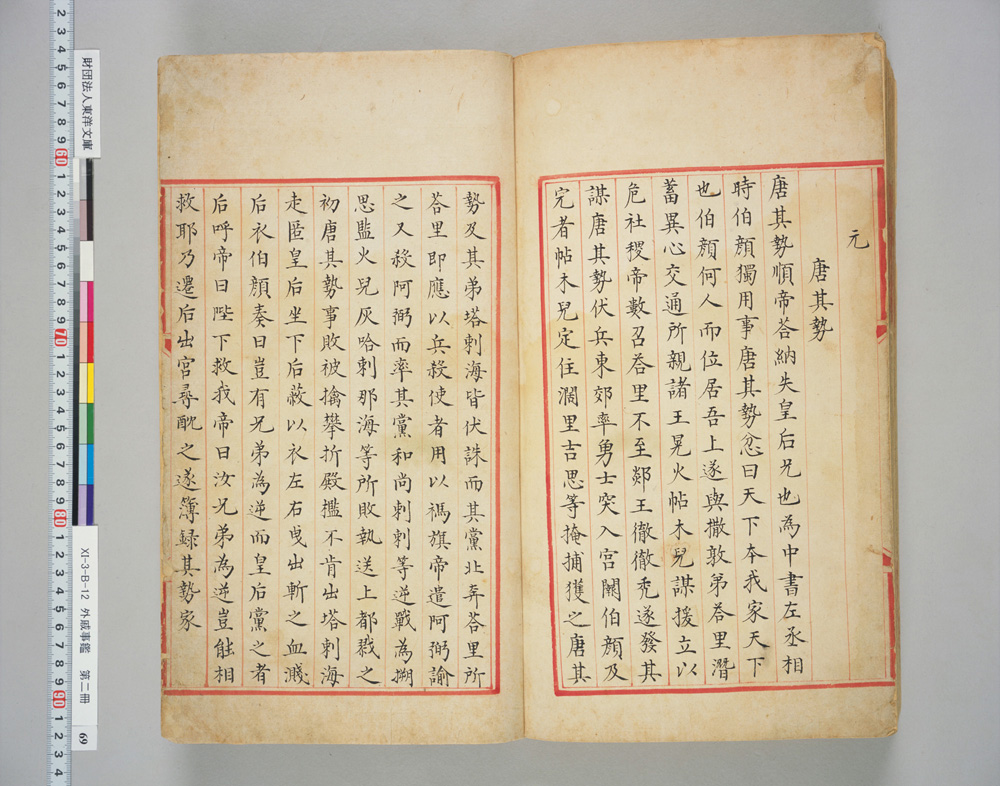 元
唐其勢
唐其勢順帝荅納失皇后兄也為中書左丞相
時伯顔獨用事唐其勢忿曰天下本我家天下
也伯顔何人而位居吾上遂與撒敦弟荅里潛
蓄異心交通所親諸王晃火帖木兒謀援立以
危社稷帝數召荅里不至郯王徹徹禿遂發其
謀唐其勢伏兵東郊率勇士突入宮闕伯顔及
完者帖木兒定住濶里吉思等掩捕獲之唐其
勢及其弟塔剌海皆伏誅而其黨北奔荅里所
荅里即應以兵殺使者用以禡旗帝遣阿弼諭
之又殺阿弼而率其黨和尚剌剌等逆戰為搠
思監火兒灰哈剌那海等所敗執送上都戮之
初唐其勢事敗被擒攀折殿檻不肯出塔剌海
走匿皇后坐下后蔽以衣左右曳出斬之血濺
后衣伯顔奏曰豈有兄弟為逆而皇后黨之者
后呼帝曰陛下救我帝曰汝兄弟為逆豈能相
救耶乃遷后出宮尋酖之遂簿録其勢家
財団法人東洋文庫
XI-3-B-12 外戚事鑑 第二冊 69
2 3 4 5 6 7 8 9 60 1 2 3 4 5 6 7 8 9 70 1 2 3 4 5 6 7 8 9 80 1 2 3 4 5 6 7 8 9 90 1 2 3 4